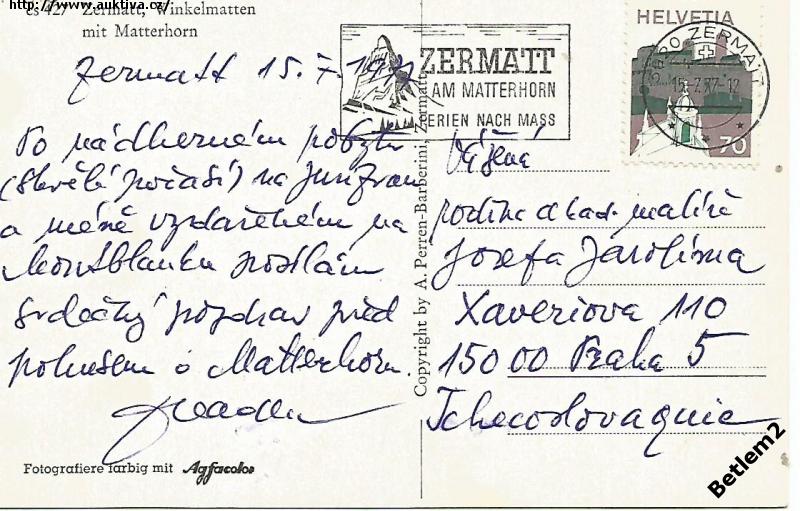 http://www.auktiva.cz/
cs 427 Zermatt, Winkelmatten
mit Matterhorn
HELVETIA
70
3920 ZERMATT
ZERMATT
AM MATTERHORN
FERIEN NACH MASS
Zermatt 15.7.1977
Po nádherném pobytu
(skvělé počasí) na Jungfrau
a méně vydařeném na
Montblanku posílám
srdečný pozdrav před
pokusem o Matterhorn.
Copyright by A. Perren-Barberini, Zermatt
Vážená
rodina akad. malíře
Josefa Jarolíma
Xaveriova 110
150 00 Praha 5
Tchecoslovaquie
Fotografiere farbig mit Agfacolor
Betlem2